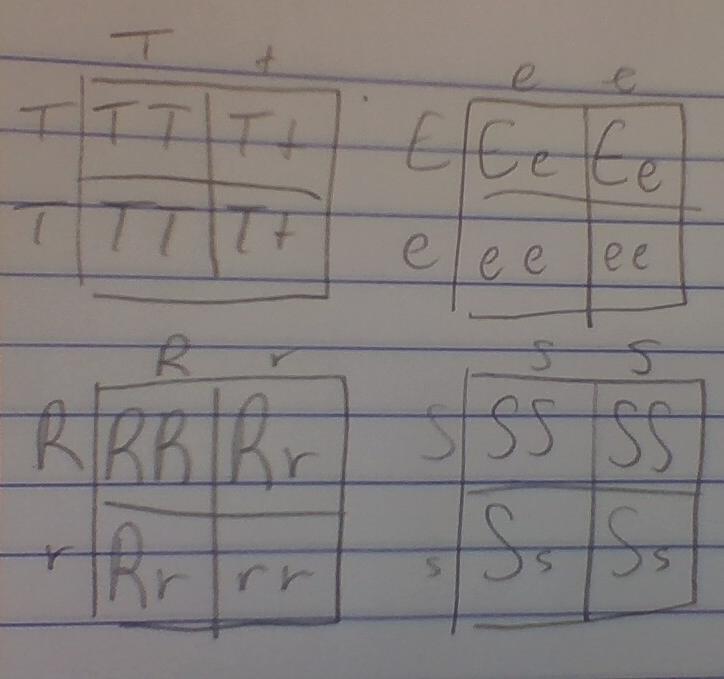 T t
T TT Tt
T TT Tt
e e
E Ee Ee
e ee ee
R r
R RR Rr
r Rr rr
S S
S SS SS
s Ss Ss